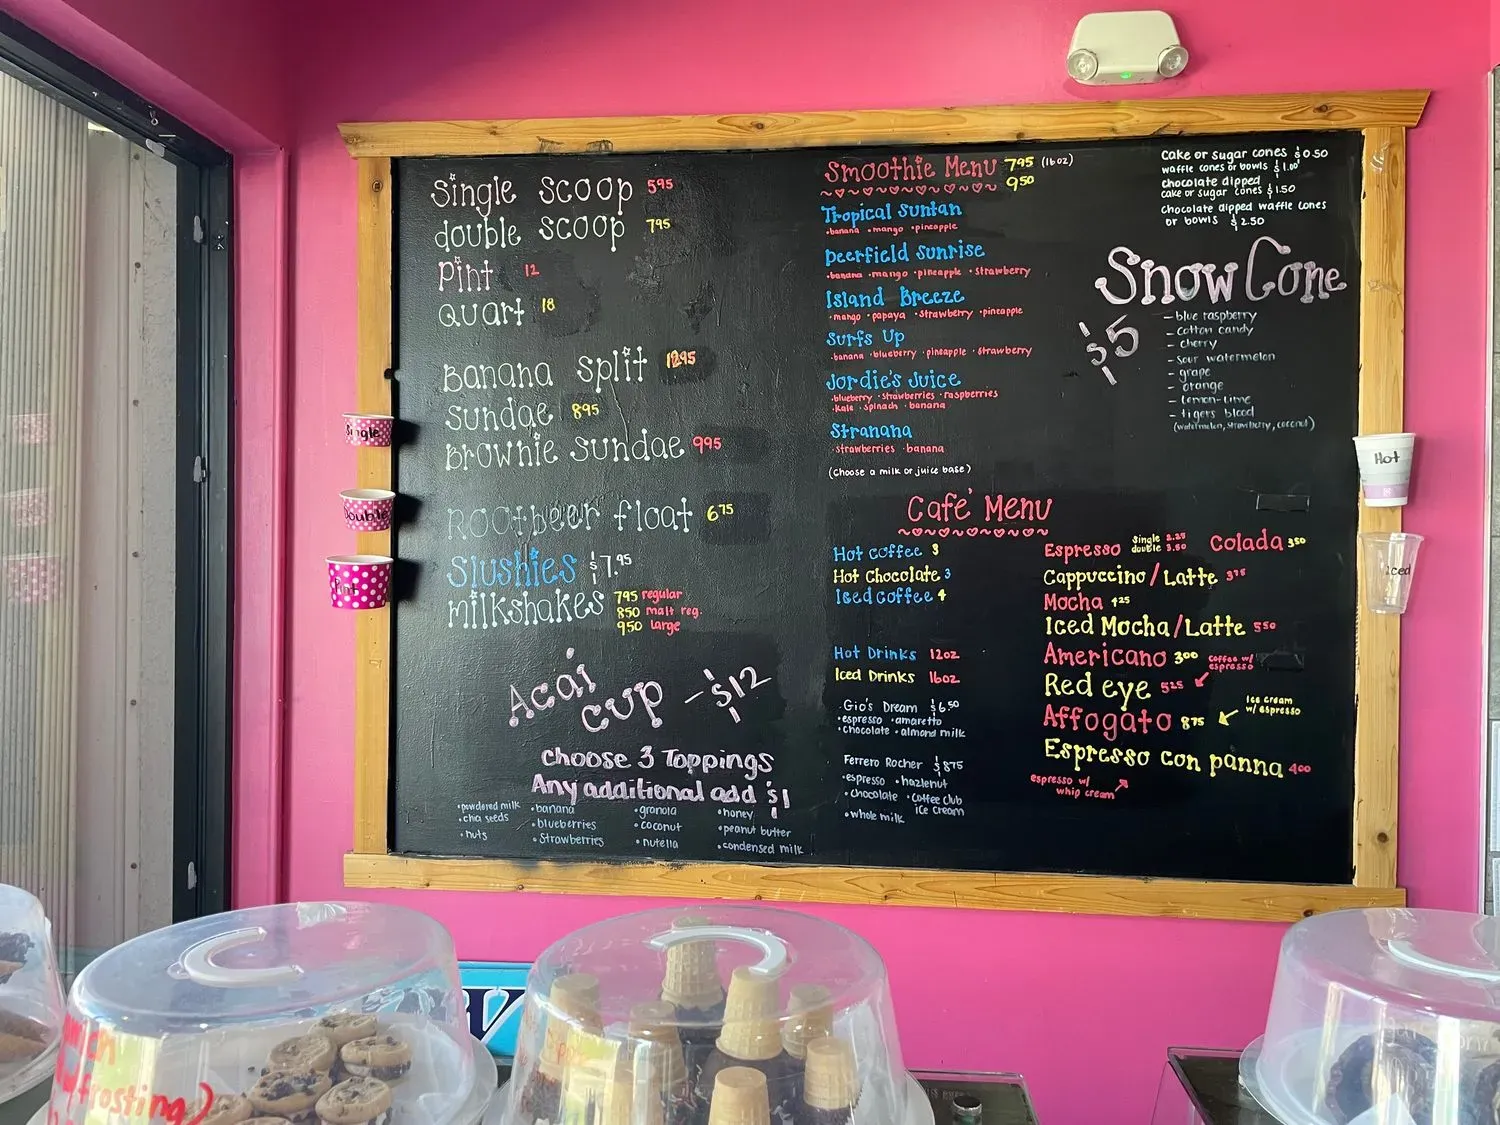 Single scoop 595
double scoop 795
Pint 12
Quart 18
Banana split 1295
Sundae 895
Brownie Sundae 995
Rootbeer float 675
Slushies $7.95
milkshakes 795 regular
850 malt reg.
950 large
Acai
Cup - $12
Choose 3 Toppings
Any additional add $1
• powdered milk
• chia seeds
• nuts
• banana
• blueberries
• Strawberries
• granola
• coconut
• nutella
• honey
• peanut butter
• condensed milk
Smoothie Menu 795 (16oz)
950
Tropical Suntan
• banana • mango • pineapple
Deerfield Sunrise
• banana • mango • pineapple • Strawberry
Island Breeze
• mango • papaya • Strawberry • pineapple
Surfs Up
• banana • blueberry • pineapple • Strawberry
Jordie's Juice
• blueberry • Strawberries • raspberries
• kale • spinach • banana
Stranana
• strawberries • banana
(Choose a milk or juice base)
Cake or sugar cones $0.50
waffle cones or bowls $1.00
chocolate dipped
cake or sugar cones $1.50
Chocolate dipped waffle cones
or bowls $2.50
Snow Cone
$5
- blue raspberry
- cotton candy
- cherry
- sour watermelon
- grape
- orange
- lemon-lime
- tigers blood
(watermelon, strawberry, coconut)
Café Menu
Hot coffee 3
Hot Chocolate 3
Iced coffee 4
Hot Drinks 12oz
Iced Drinks 16oz
Gio's Dream $6.50
• espresso • amaretto
• chocolate • almond milk
Ferrero Rocher $875
• espresso • hazlenut
• chocolate • coffee club
ice cream
• whole milk
Espresso single 2.25
double 3.50
Colada 350
Cappuccino/Latte 375
Mocha 425
Iced Mocha/Latte 550
Americano 300
Red eye 525
coffee w/
espresso
Affogato 875
Ice cream
w/ espresso
Espresso con panna 400
espresso w/
whip cream
Single
Double
Pint
Hot
Iced
frosting)